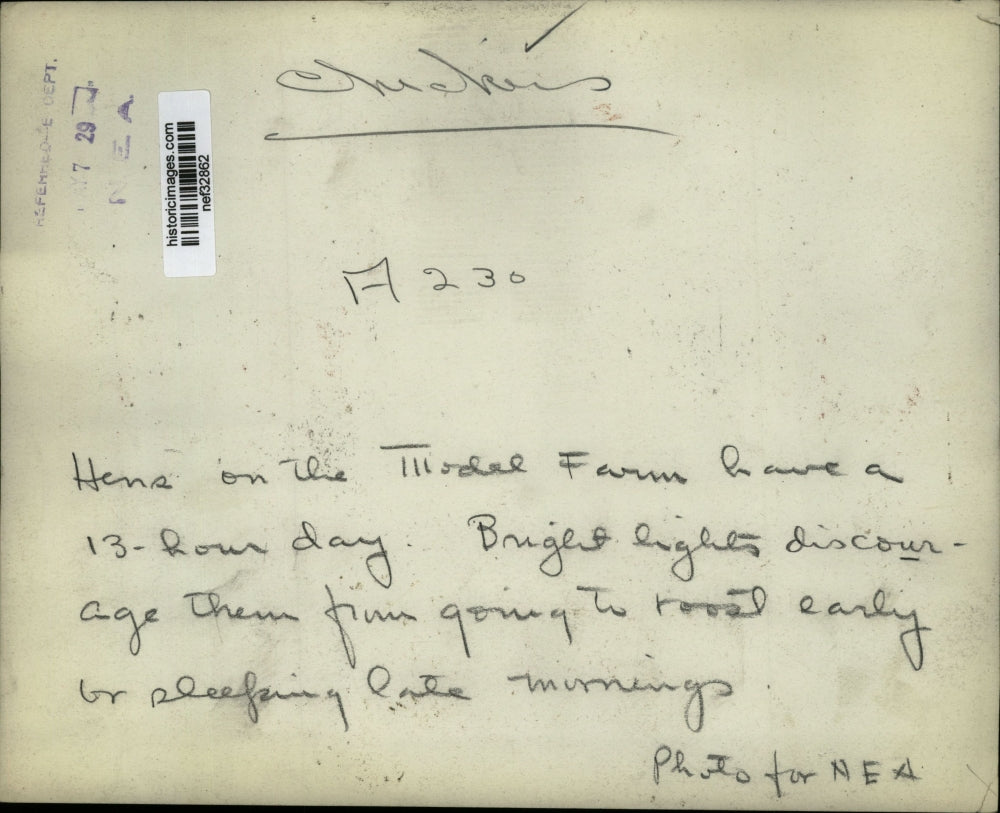 Chickens
REFERENCE DEPT.
7 29
N E A
historicimages.com
nef32862
A 230
Hens on the Model Farm have a
13-hour day. Bright lights discour-
age them from going to roost early
or sleeping late mornings.
Photo for NEA